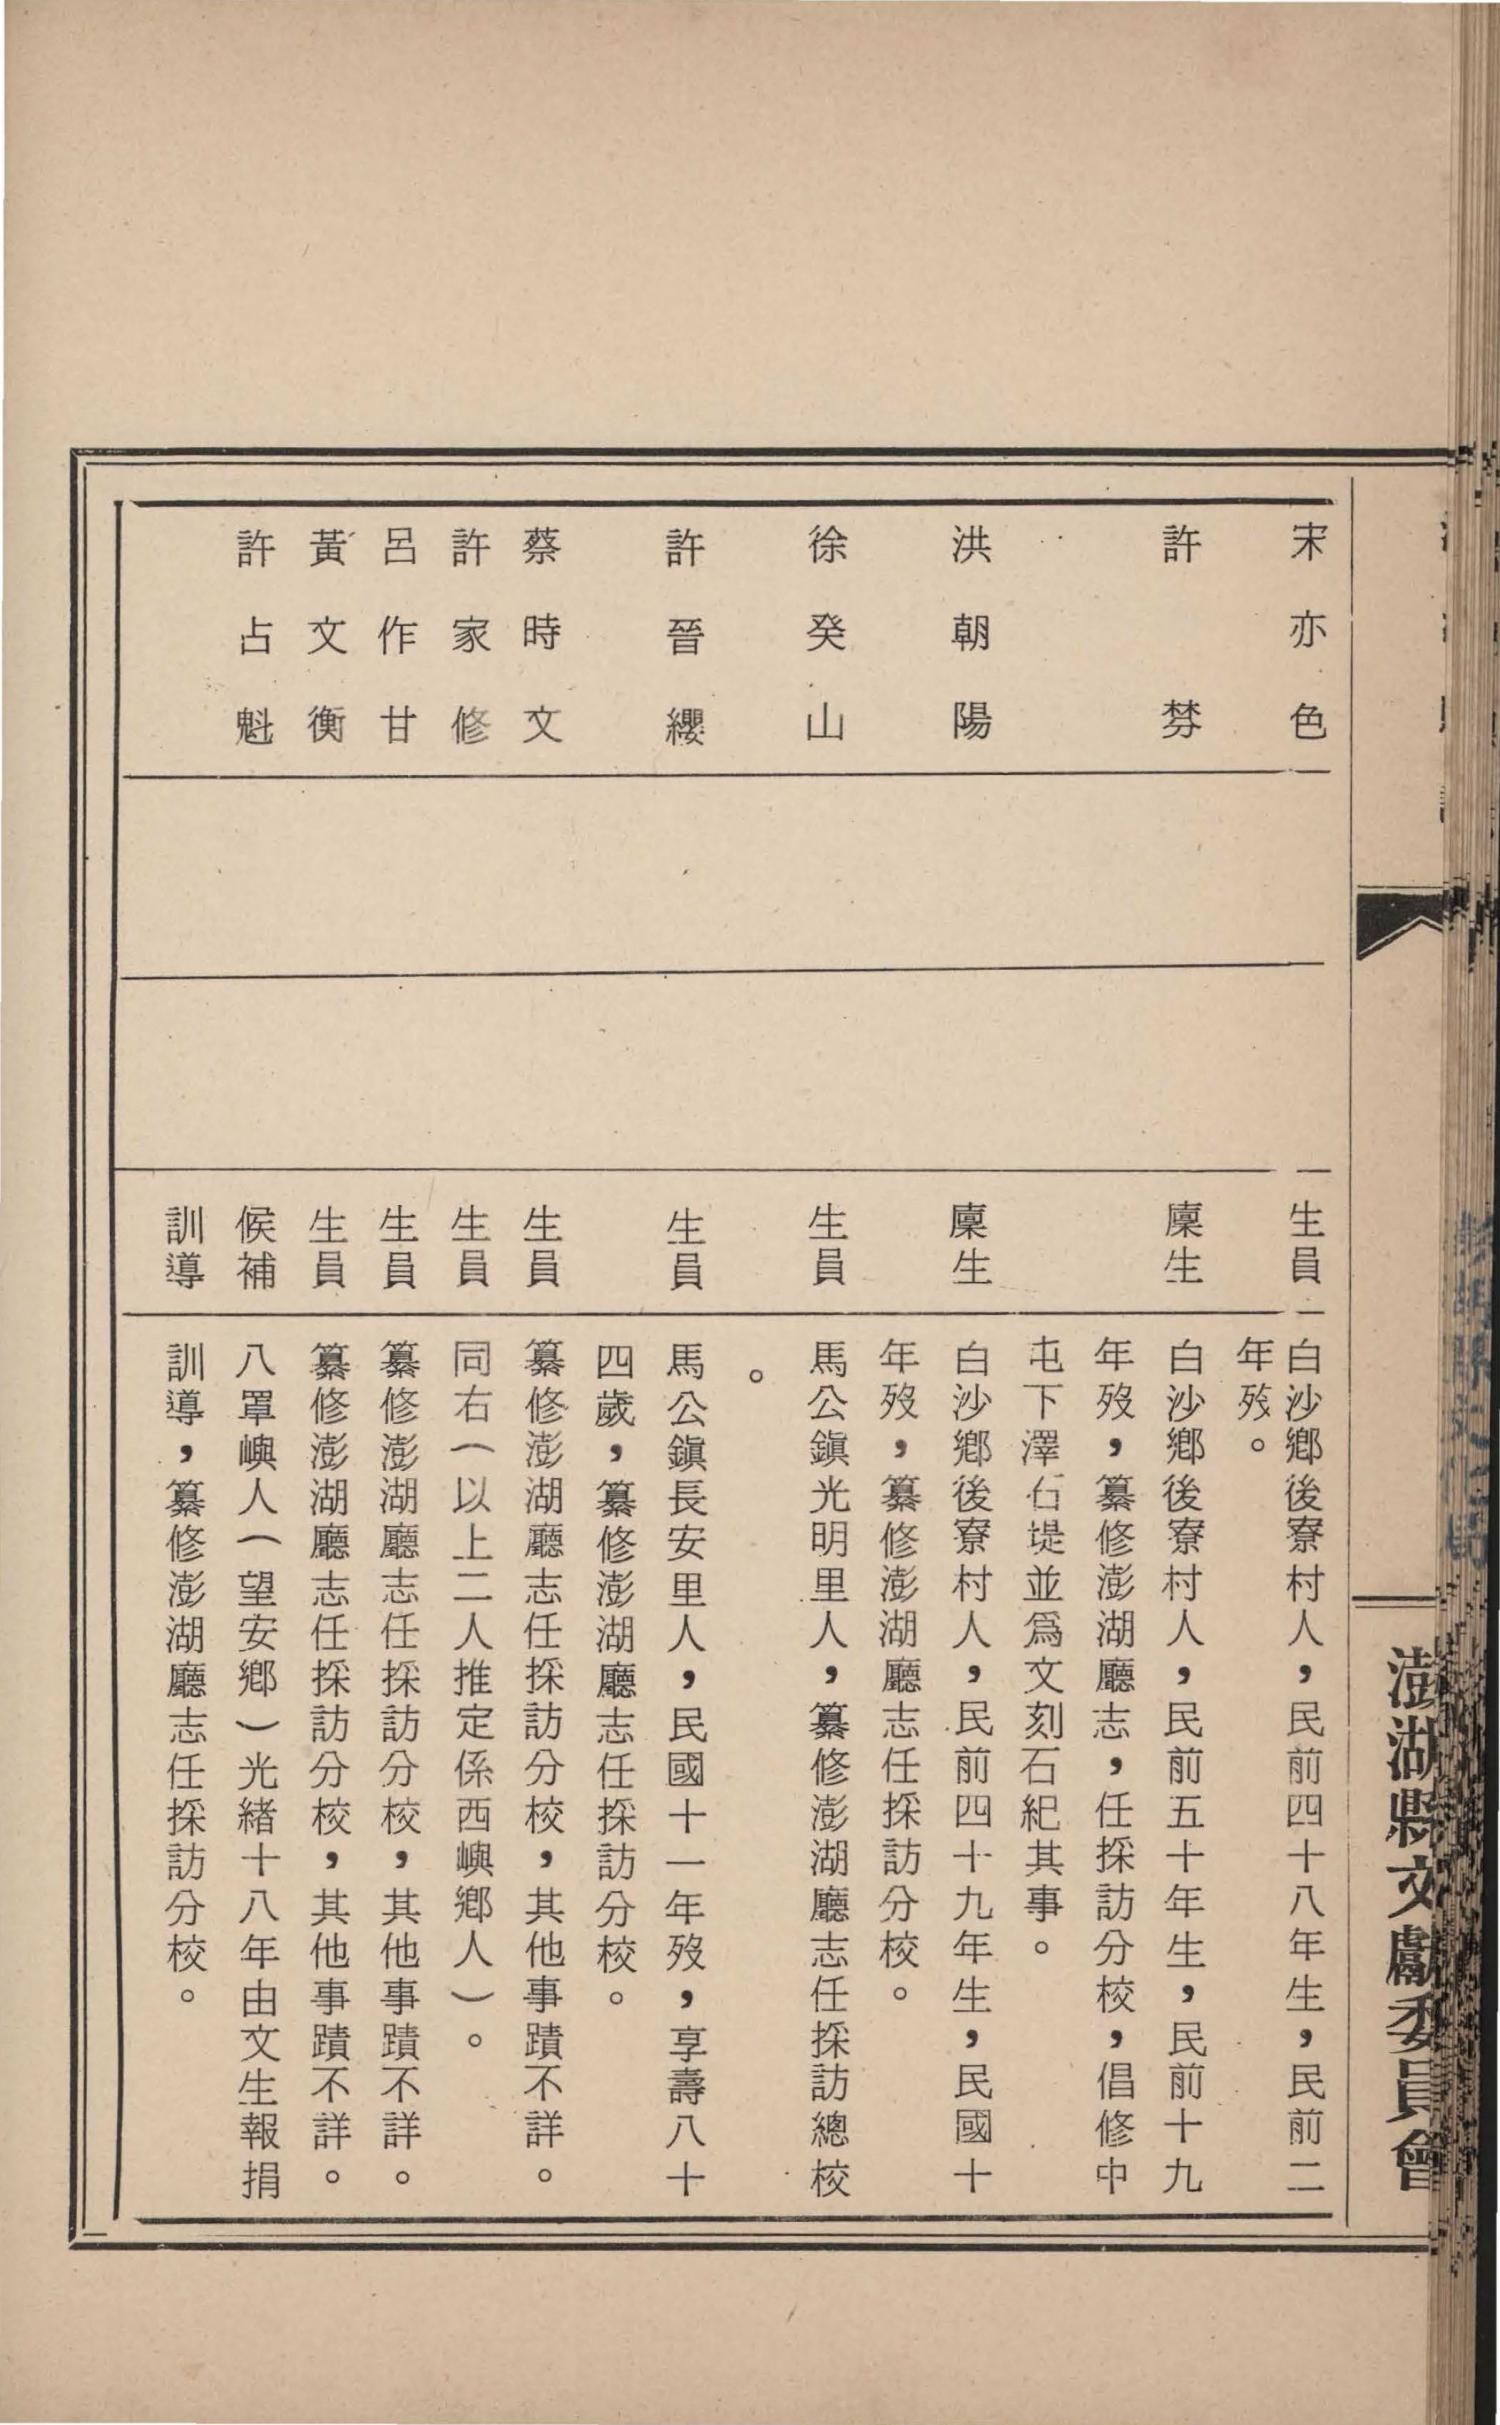 澎湖縣文獻委員會
宋亦色
生員
白沙鄉後寮村人，民前四十八年生，民前二
年歿。
許棼
廩生
白沙鄉後寮村人，民前五十年生，民前十九
年歿，纂修澎湖廳志，任採訪分校，倡修中
屯下澤石堤並爲文刻石紀其事。
洪朝陽
廩生
白沙鄉後寮村人，民前四十九年生，民國十
年歿，纂修澎湖廳志任採訪分校。
徐癸山
生員
馬公鎭光明里人，纂修澎湖廳志任採訪總校
。
許晉纓
生員
馬公鎭長安里人，民國十一年歿，享壽八十
四歲，纂修澎湖廳志任採訪分校。
蔡時文
生員
纂修澎湖廳志任採訪分校，其他事蹟不詳。
許家修
生員
同右（以上二人推定係西嶼鄉人）。
呂作甘
生員
纂修澎湖廳志任採訪分校，其他事蹟不詳。
黃文衡
生員
纂修澎湖廳志任採訪分校，其他事蹟不詳。
許占魁
候補
訓導
八罩嶼人（望安鄉）光緒十八年由文生報捐
訓導，纂修澎湖廳志任採訪分校。